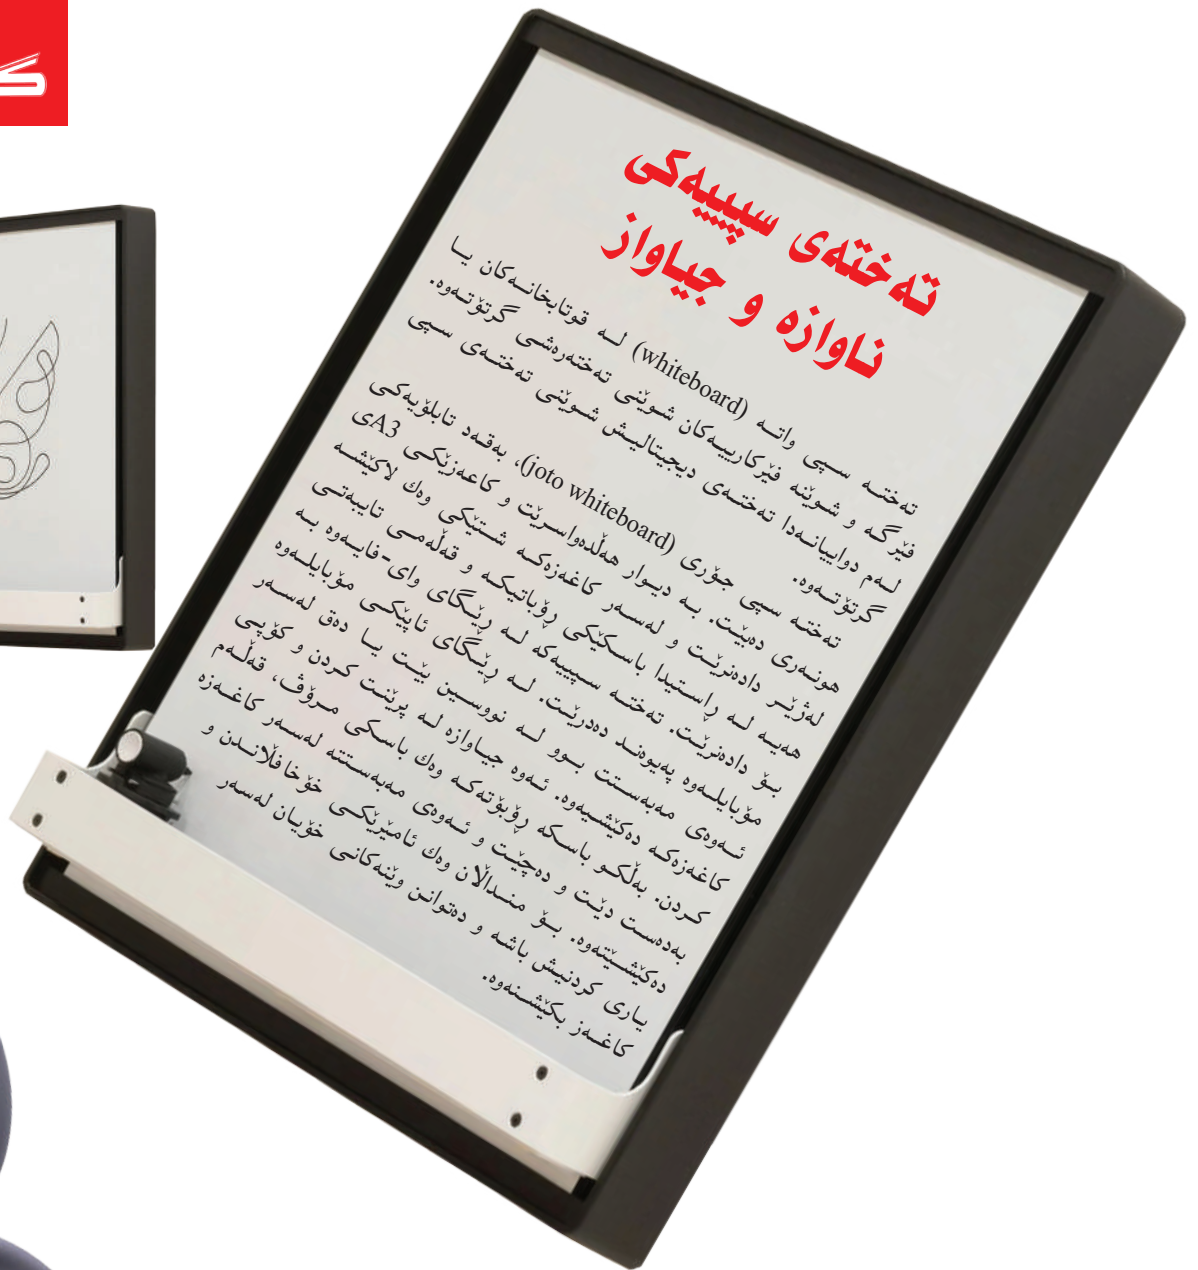 تەختەی سپییەکی
ناوازە و جیاواز
تەختە سپی واتە (whiteboard) لە قوتابخانەکان یا
فێرگە و شوێنە فێرکارییەکان شوێنی تەختەرەشی گرتۆتەوە.
لەم دواییانەدا تەختەی دیجیتالیش شوێنی تەختەی سپی
گرتۆتەوە.
تەختە سپی جۆری (joto whiteboard)، بەقەد تابلۆیەکی
هونەری دەبێت. بە دیوار هەڵدەواسرێت و کاغەزێکی A3ی
لەژێر دادەنرێت و لەسەر کاغەزەکە شتێکی وەك لاکێشە
هەیە لە ڕاستیدا باسکێکی ڕۆباتیکە و قەڵەمی تایبەتی
بۆ دادەنرێت. تەختە سپییەکە لە ڕێگای وای-فایەوە بە
مۆبایلەوە پەیوەند دەدرێت. لە ڕێگای ئاپێکی مۆبایلەوە
ئەوەی مەبەستت بوو لە نووسین بێت یا دەق لەسەر
کاغەزەکە دەکێشیەوە. ئەوە جیاوازە لە پرێنت کردن و کۆپی
کردن. بەڵکو باسکە ڕۆبۆتەکە وەك باسکی مرۆڤ، قەڵەم
بەدەست دێت و دەچێت و ئەوەی مەبەستتە لەسەر کاغەزە
دەکێشیێتەوە. بۆ منداڵان وەك ئامێرێکی خۆخافڵاندن و
یاری کردنیش باشە و دەتوانن وێنەکانی خۆیان لەسەر
کاغەز بکێشنەوە.